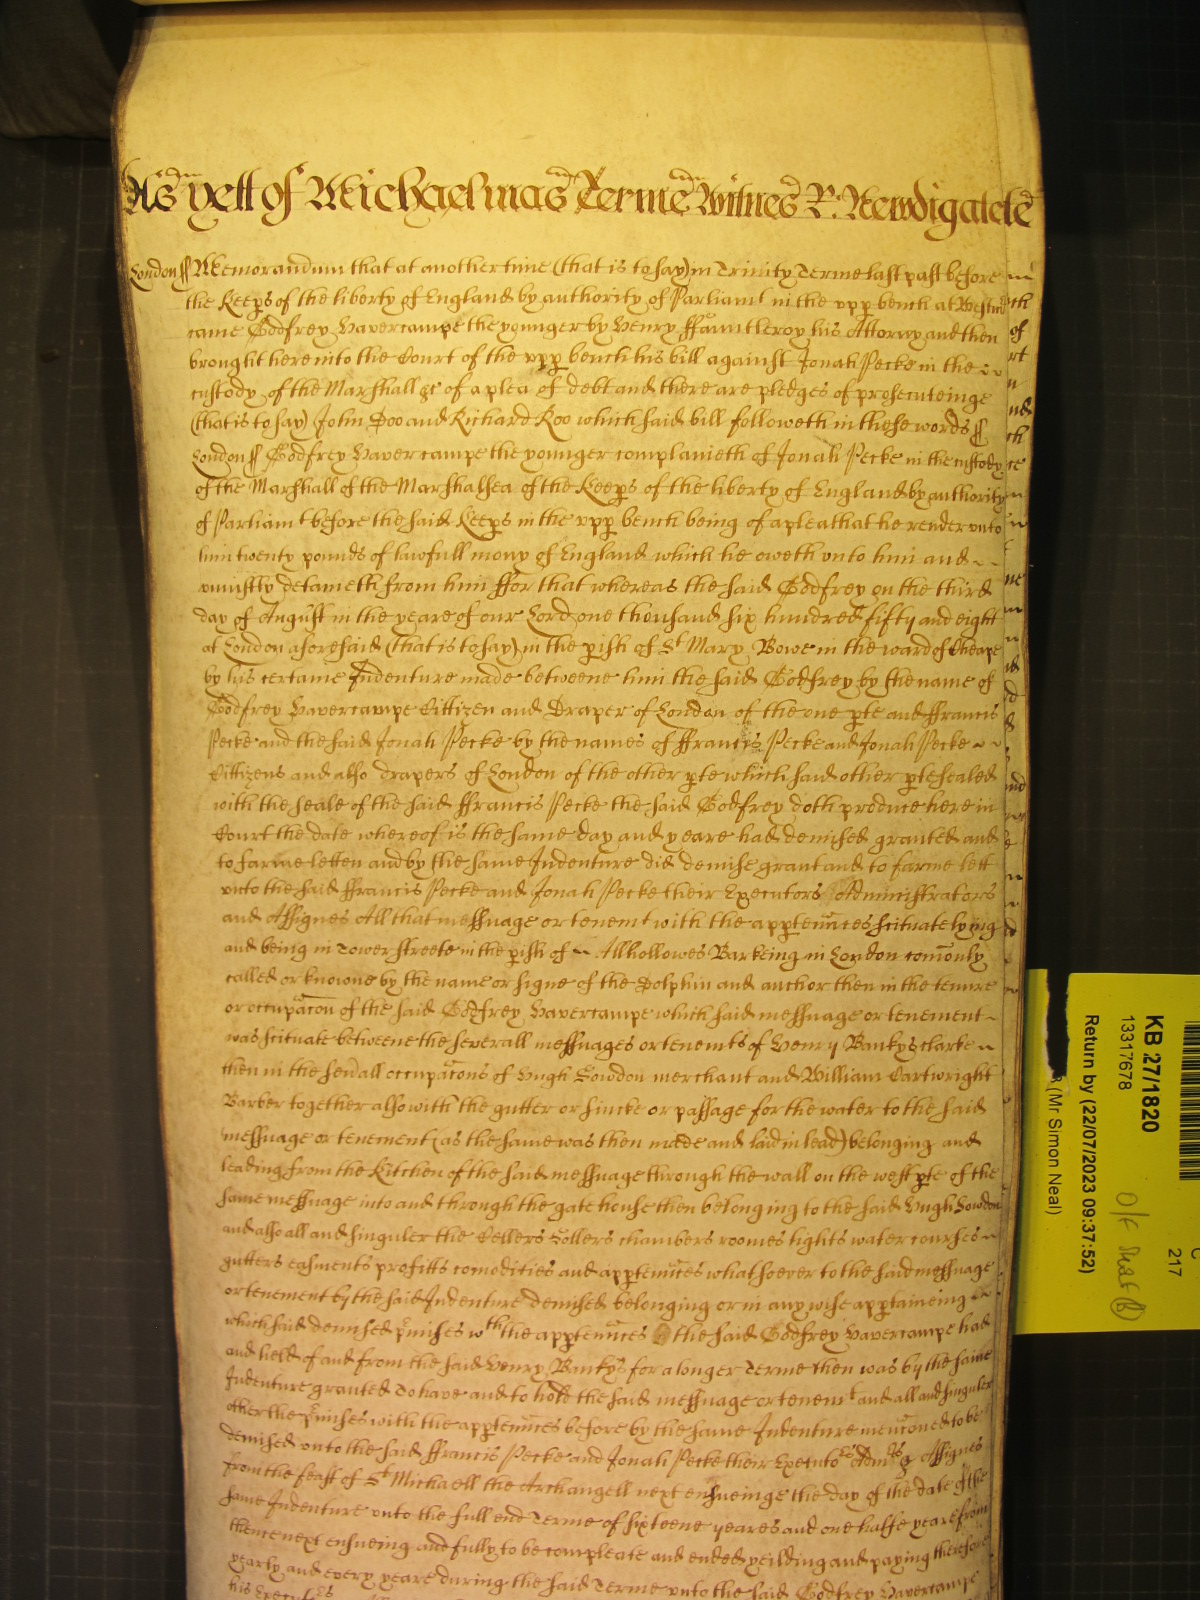 As yett of Michaelmas Terme Witnes R: Newdigate
London ss Memorandum that at another time (that is to say) in Trinity Terme last past before
the Keeps of the liberty of England by authority of Parliamt in the upp bench at Westmr
came Godfrey Havercampe the younger by Henry ffauntleroy his Attorney and then
brought here into the Court of the upp bench his bill against Jonah Pecke in the
custody of the Marshall &c of a plea of debt and there are pledges of prosecuteinge
(that is to say) John Doo and Richard Roo which said bill followeth in these words ss
London ss Godfrey Havercampe the younger complaineth of Jonah Pecke in the custody
of the Marshall of the Marshalsea of the Keeps of the liberty of England by authority
of Parliamt before the said Keeps in the upp bench being of a plea that he render unto
him twenty pounds of lawfull mony of England which he oweth unto him and
uniustly detaineth from him ffor that whereas the said Godfrey on the third
day of August in the yeare of our Lord one thousand six hundred fifty and eight
at London aforesaid (that is to say) in the pish of St Mary Bowe in the ward of Cheape
by his certaine Indenture made betweene him the said Godfrey by the name of
Godfrey Havercampe Cittizen and Draper of London of the one pte and ffrancis
Pecke and the said Jonah Pecke by the names of ffrancis Pecke and Jonah Pecke
Cittizens and also drapers of London of the other pte which said other pte sealed
with the seale of the said ffrancis Pecke the said Godfrey doth produce here in
Court the date whereof is the same day and yeare had demised granted and
to farme letten and by the same Indenture did demise grant and to farme lett
unto the said ffrancis Pecke and Jonah Pecke their Executors Administrators
and Assignes All that messuage or tenemt with the apptennces scituate lying
and being in Tower streete in the pish of Allhollowes Barkeing in London comonly
called or knowne by the name or signe of the Dolphin and anchor then in the tenure
or occupacon of the said Godfrey Havercampe which said messuage or tenement
was scituate betweene the severall messuages or tenemts of Henry Bankys clarke
then in the sevall occupacons of Hugh Lowdon merchant and William Cartwright
Barber together also with the gutter or sincke or passage for the water to the said
messuage or tenement (as the same was then made and laid in lead) belonging and
leading from the Kitchen of the said messuage through the wall on the west pte of the
same messuage into and through the gate house then belonging to the said Hugh Lowdon
and also all and singuler the Cellers Sollers chambers roomes lights water courses
gutters easments profitts comodities and apptennces whatsoever to the said messuage
or tenement by the said Indenture demised belonging or in any wise apptaineing
which said demised pmises wth the apptennces the said Godfrey Havercampe had
and held of and from the said Henry Bankys for a longer Terme then was by the same
Indenture granted To have and to hold the said messuage or tenemt and all and singuler
other the pmises with the apptennces before by the same Indenture menconed to be
demised unto the said ffrancis Pecke and Jonah Pecke their Executors Admrs & Assignes
from the feast of St Michaell the Archangell next ensueinge the day of the date of the
same Indenture unto the full end Terme of sixteene yeares and one halfe yeare from
thence next ensueing and fully to be compleate and ended yeilding and paying therefore
yearly and every yeare during the said Terme unto the said Godfrey Havercampe
his Executrs
KB 27/1820
13317678
Return by (22/07/2023 09:37:52)
(Mr Simon Neal)
217